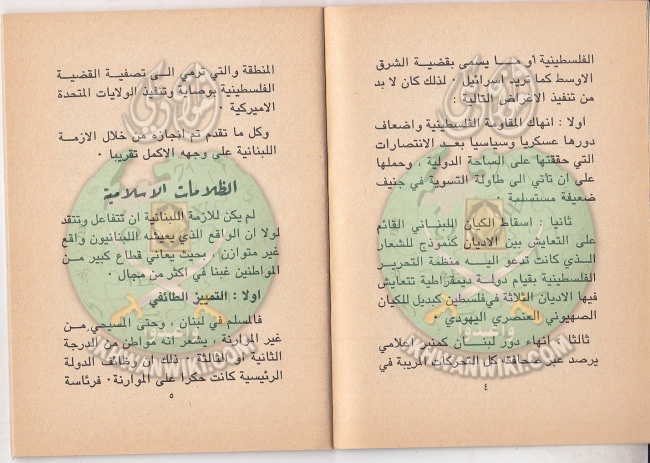 الفلسطينية أو مما يسمى بقضية الشرق
الاوسط كما تريد اسرائيل ٠ لذلك كان لا بد
من تنفيذ الاغراض التالية :
اولا : انهاك المقاومة الفلسطينية واضعاف
دورها عسكريا وسياسيا بعد الانتصارات
التي حققتها على الساحة الدولية ، وحملها
على ان تأتي الى طاولة التسوية في جنيف
ضعيفة مستسلمة ٠
ثانيا : اسقاط الكيان اللبناني القائم
على التعايش بين الاديان كنموذج للشعار
الذي كانت تدعو اليه منظمة التحرير
الفلسطينية بقيام دولة ديمقراطية تتعايش
فيها الاديان الثلاثة في فلسطين كبديل للكيان
الصهيوني العنصري اليهودي ٠
ثالثا : إنهاء دور لبنان كمنبر اعلامي
يرصد عبر صحافته كل التحركات المريبة في
٤
المنطقة والتي ترمي الى تصفية القضية
الفلسطينية بوصاية وتنفيذ الولايات المتحدة
الاميركية ٠
وكل ما تقدم تم انجازه من خلال الازمة
اللبنانية على وجهه الاكمل تقريبا ٠
الظلامات الاسلامية
لم يكن للازمة اللبنانية ان تتفاعل وتتقد
لولا ان الواقع الذي يعيشه اللبنانيون واقع
غير متوازن ، بحيث يعاني قطاع كبير من
المواطنين غبنا في اكثر من مجال ٠
اولا : التمييز الطائفي
فالمسلم في لبنان ، وحتى المسيحي من
غير الموارنة ، يشعر انه مواطن من الدرجة
الثانية او الثالثة ، ذلك ان وظائف الدولة
الرئيسية كانت حكرا على الموارنة ٠ فرئاسة
٥
IKHWANWIKI.COM
IKHWANWIKI.COM